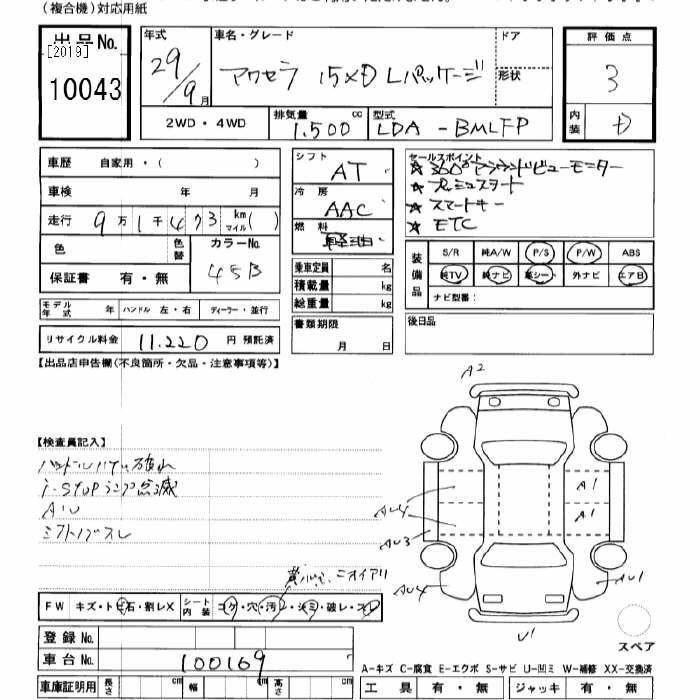 (複合機)対応用紙
出品No.
[2019]
10043
年式 29/9月
車名・グレード アクセラ 15XD Lパッケージ
ドア
形状
評価点 3
内装 D
2WD・4WD
排気量 1.500 cc
型式 LDA-BMLFP
車歴 自家用・( )
車検 年 月
走行 9万1千473 km マイル( )
色 色替
カラーNo. 45B
保証書 有・無
モデル年式 年 ハンドル 左・右 ディーラー・並行
リサイクル料金 11.220 円 預託済
シフト AT
冷房 AAC
燃料 軽油
乗車定員 名
積載量 kg
総重量 kg
書類期限 月 日
セールスポイント
☆ 360°アラウンドビューモニター
☆ プッシュスタート
☆ スマートキー
☆ ETC
装備品
S/R 純A/W P/S P/W ABS
純TV 純ナビ 革シート 外ナビ エアB
ナビ型番:
後日品
【出品店申告欄(不良箇所・欠品・注意事項等)】
【検査員記入】
i-STOPランプ点滅
シフトノブスレ
ニオイアリ
FW キズ・トビ石・割レX
シート内装 コゲ・穴・汚レ・シミ・破レ・スレ
A2
A1
A1
AU4
AU3
AU4
AU1
U1
スペア
登録No.
車台No. 100169
A-キズ C-腐食 E-エクボ S-サビ U-凹ミ W-補修 XX-交換済
車庫証明用 長さ cm 幅 cm 高さ cm
工具 有・無 ジャッキ 有・無